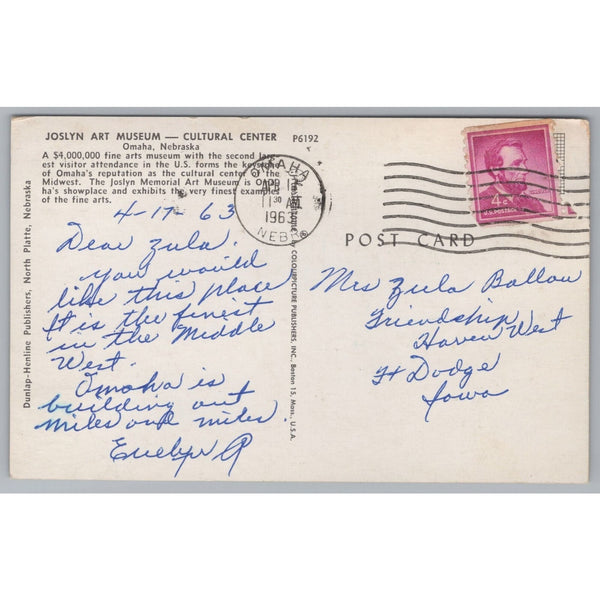 JOSLYN ART MUSEUM — CULTURAL CENTER
Omaha, Nebraska
A $4,000,000 fine arts museum with the second larg-
est visitor attendance in the U.S. forms the keystone
of Omaha's reputation as the cultural center of the
Midwest. The Joslyn Memorial Art Museum is Oma-
ha's showplace and exhibits the very finest examples
of the fine arts.
P6192
4-17-63
Dear Zula.
You would
like this place
It is the finest
in the Middle
West.
Omaha is
building out
miles and miles.
Evelyn A
Dunlap-Henline Publishers, North Platte, Nebraska
COLOURPICTURE PUBLISHERS, INC., Boston 15, Mass., U.S.A.
OMAHA
APR
30
AM
1963
NEBR
4c
U.S. POSTAGE
POST CARD
Mrs Zula Ballou
Friendship
Haven West
Ft Dodge
Iowa